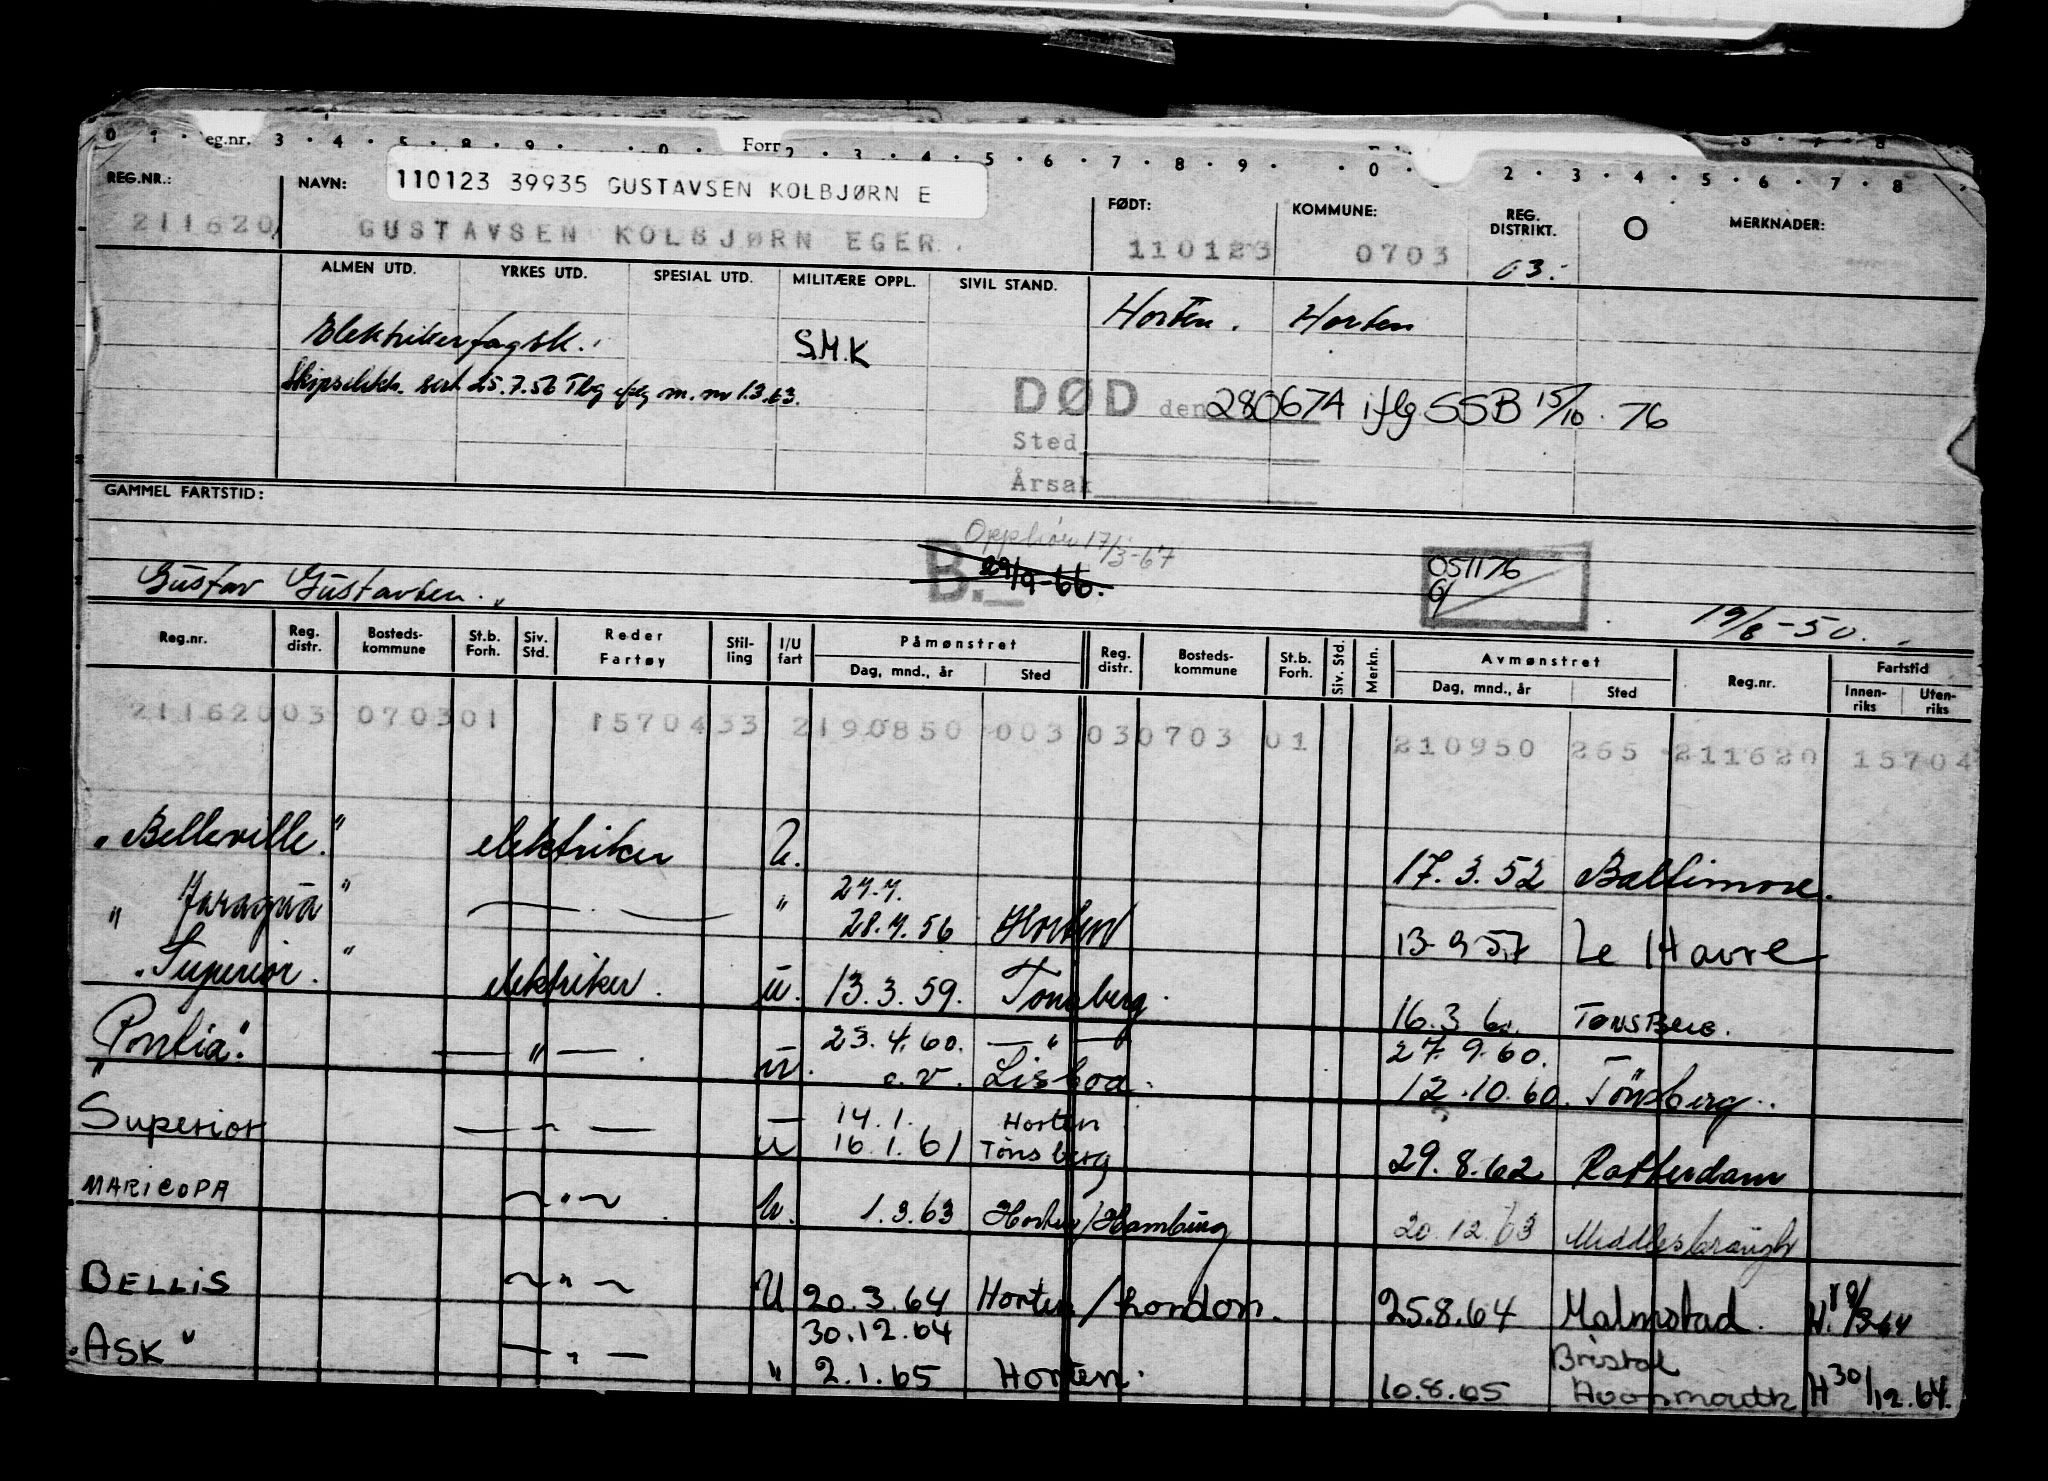 0 1 eg.nr. 3 4 5 8 9 0 Forr 2 3 4 5 6 7 8 9 0 2 3 4 5 6 7 8
REG.NR.: NAVN: 110123 39935 GUSTAVSEN KOLBJØRN E FØDT: KOMMUNE: REG. DISTRIKT. O MERKNADER:
211620 GUSTAVSEN KOLBJØRN EGER. 110123 0703 03.
ALMEN UTD. YRKES UTD. SPESIAL UTD. MILITÆRE OPPL. SIVIL STAND.
Elektrikerfagsk. S.M.K Horten. Horten
Skipselektr. sert 25.7.56 Tbg iflg m. nr 1.3.63.
DØD den 280674 iflg SSB 15/10. 76
Sted
Årsak
GAMMEL FARTSTID:
Opphør 17/3-67
B. 29/9-66. 051176
Gustav Gustavsen. 19/8-50.
Reg.nr. Reg. distr. Bosteds-kommune St.b. Forh. Siv. Std. Reder Fartøy Stil-ling I/U fart Påmønstret Reg. distr. Bosteds-kommune St.b. Forh. Siv. Std. Merkn. Avmønstret Reg.nr. Fartstid
Dag, mnd., år Sted Dag, mnd., år Sted Innen-riks Uten-riks
21162003 070301 1570433 2190850 003 030703 01 210950 265 211620 15704
"Belleville." elektriker U. 17.3.52 Baltimore.
" Jaragua " — — " 27.7. 28.7.56 Horten 13-9 57 Le Havre
"Superior." elektriker. u. 13.3.59. Tønsberg. 16.3 60. TønsBerg.
"Pontia". — " — . u. 23.4.60. — " — 27.9.60.
c.v. Lisboa. 12.10.60. Tönsberg.
Superior — " — u 14.1. Horten
16.1.61 Tönsberg 29.8.62 Rotterdam
MARICOPA ~ " ~ U. 1.3.63 Horten/Hamburg 20.12.63 Middlesbrough
BELLIS ~ " ~ U 20.3.64 Horten/London. 25.8.64 Halmstad. H.
30.12.64 Bristol
"ASK" — " — " 2.1.65 Horten. 10.8.65 Avonmouth H 30/12.64.